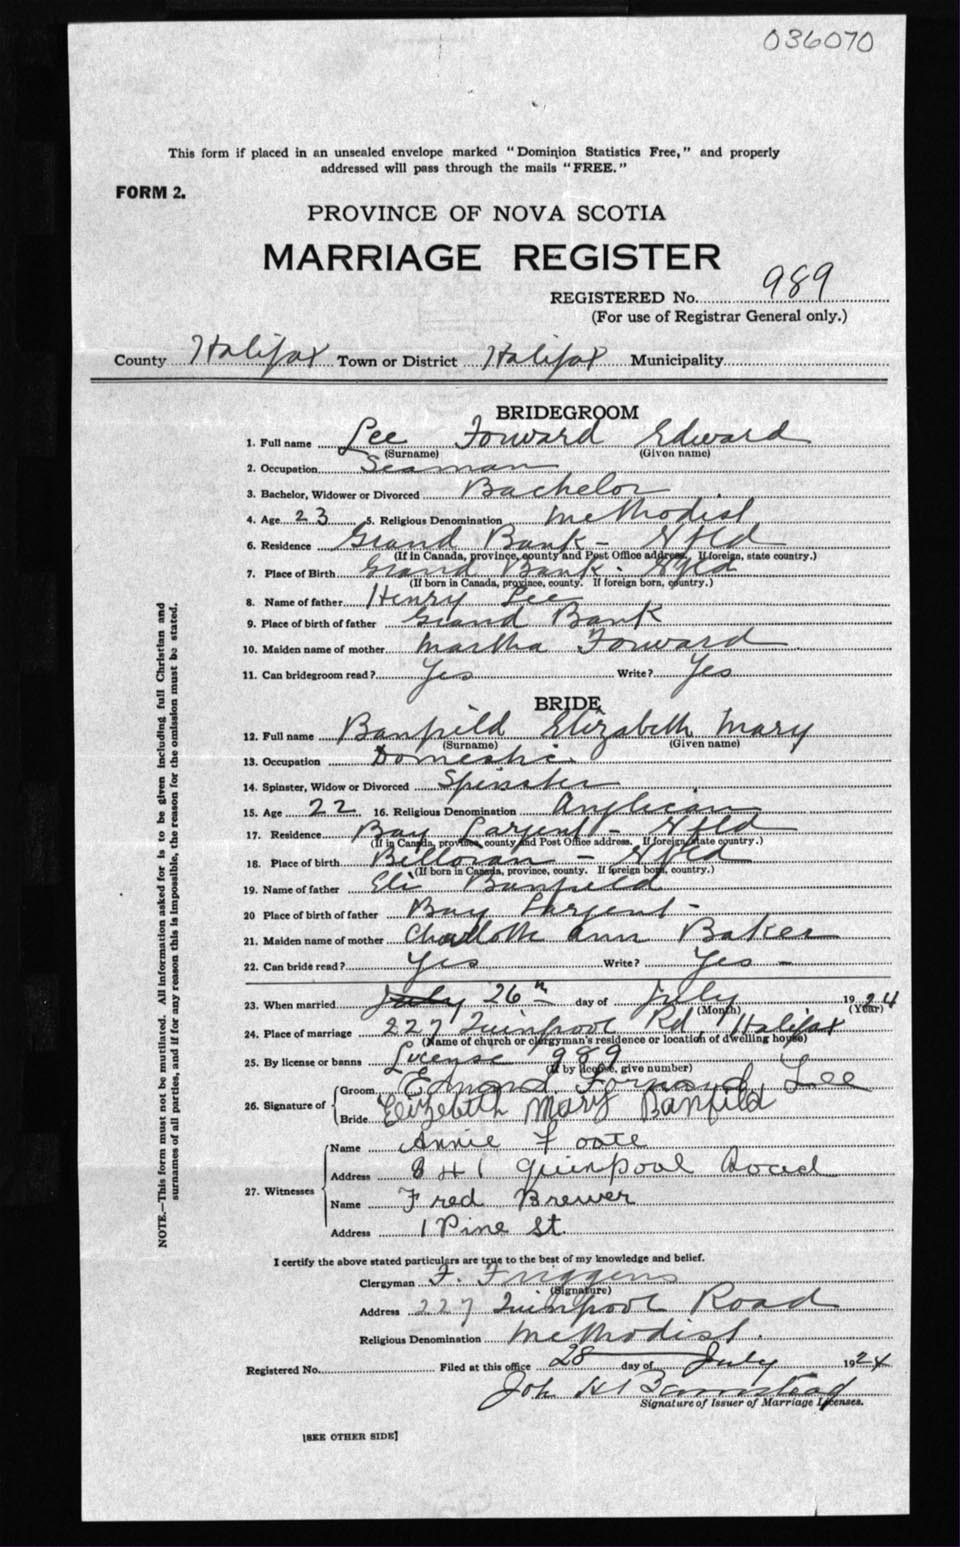 036070
This form if placed in an unsealed envelope marked "Dominion Statistics Free," and properly
addressed will pass through the mails "FREE."
FORM 2.
PROVINCE OF NOVA SCOTIA
MARRIAGE REGISTER
REGISTERED No. 989
(For use of Registrar General only.)
County Halifax Town or District Halifax Municipality
BRIDEGROOM
1. Full name Lee Forward Edward
(Surname) (Given name)
2. Occupation Seaman
3. Bachelor, Widower or Divorced Bachelor
4. Age 23 5. Religious Denomination Methodist
6. Residence Grand Bank - Nfld
(If in Canada, province, county and Post Office address. If foreign, state country.)
7. Place of Birth Grand Bank - Nfld
(If born in Canada, province, county. If foreign born, country.)
8. Name of father Henry Lee
9. Place of birth of father Grand Bank
10. Maiden name of mother Martha Forward
11. Can bridegroom read? Yes Write? Yes
BRIDE
12. Full name Banfield Elizabeth Mary
(Surname) (Given name)
13. Occupation Domestic
14. Spinster, Widow or Divorced Spinster
15. Age 22 16. Religious Denomination Anglican
17. Residence Bay Largent - Nfld
(If in Canada, province, county and Post Office address. If foreign state country.)
18. Place of birth Billoran - Nfld
(If born in Canada, province, county. If foreign born, country.)
19. Name of father Eli Banfield
20 Place of birth of father Bay Largent -
21. Maiden name of mother Charlotte Ann Baker
22. Can bride read? Yes Write? Yes -
23. When married July 26th day of July 1924
(Month) (Year)
24. Place of marriage 227 Quinpool Rd, Halifax
(Name of church or clergyman's residence or location of dwelling house)
25. By license or banns License 989
(If by license, give number)
26. Signature of Groom Edmond Forward Lee
Bride Elizebeth Mary Banfield
27. Witnesses Name Annie Foote
Address 841 Quinpool Road
Name Fred Brewer
Address 1 Pine St.
I certify the above stated particulars are true to the best of my knowledge and belief.
Clergyman F. Friggens
(Signature)
Address 227 Quinpool Road
Religious Denomination Methodist.
Registered No. Filed at this office 28 day of July 1924
Signature of Issuer of Marriage Licenses.
[SEE OTHER SIDE]
NOTE.—This form must not be mutilated. All information asked for is to be given including full Christian and
surnames of all parties, and if for any reason this is impossible, the reason for the omission must be stated.